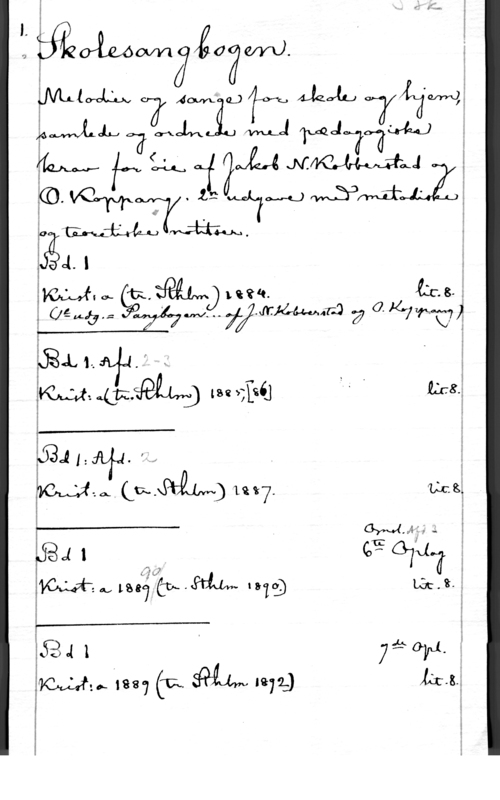 1.
Skolesangbogen.
Melodier og sange for skole og hjem,
samlede og ordnede med pædagogiske
krav for öie af Jakob N. Kobberstad og
O. Koppang. 2n udgave med metodiske
og teoretiske notitser.
Bd. 1
Krist:a (tr. Sthlm) 1884. lit. 8.
(1e udg. = Sangbogen... af J. N. Kobberstad og O. Koppang)
Bd. 1. Afd. 2-3
Krist:a (tr. Sthlm) 1885,[86] lit. 8.
Bd 1: Afd. 2
Krist:a (tr. Sthlm) 1887. lit. 8.
Afd 2
Bd 1 6te Oplag
90/
Krist:a 1889 (tr. Sthlm 1890.) lit. 8.
Bd 1 7de Opl.
Krist:a 1889 (tr. Sthlm 1892.) lit. 8.